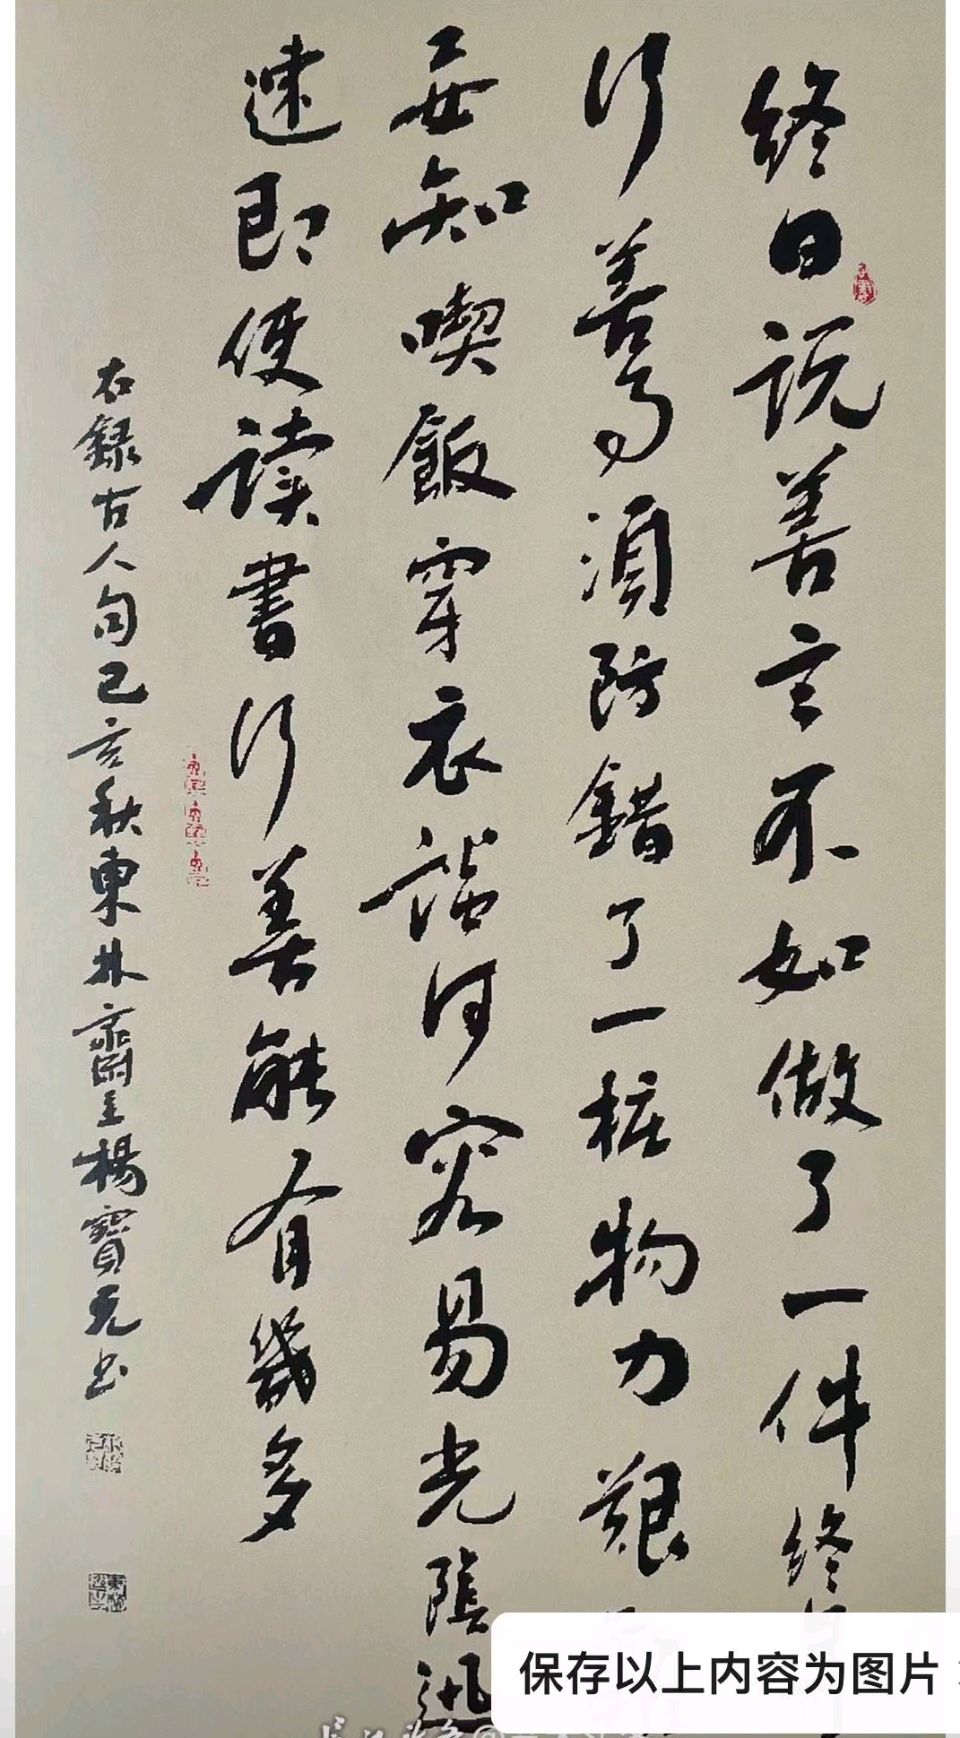 终日説善言不如做了一件终
行善事須防錯了一桩物力艱
要知喫飯穿衣談何容易光陰迅
速即使读書行善能有幾多
右録古人句己亥秋東林齋主楊寶元书
保存以上内容为图片